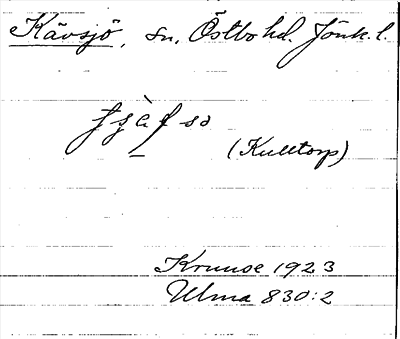 Kävsjö, sn. Östbo hd. Jönk. l.
(Kulltorp)
Kruuse 1923
Ulma 830:2